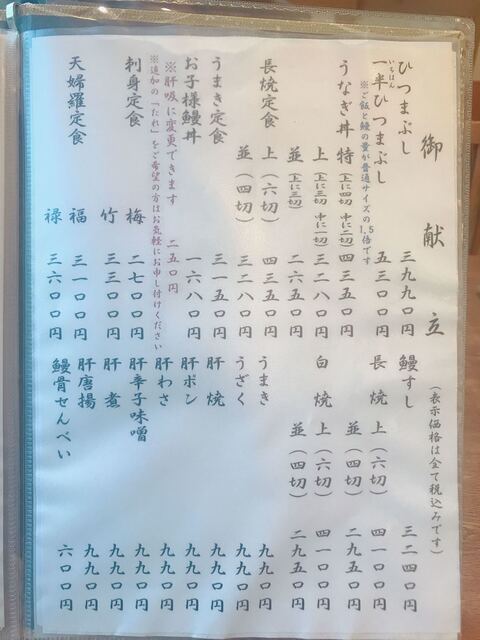 御献立
(表示価格は全て税込みです)
ひつまぶし 三九九〇円
いちはん
一半ひつまぶし 五三〇〇円
※ご飯と鰻の量が普通サイズの1.5倍です
うなぎ丼 特(上に四切 中に二切) 四三五〇円
上(上に三切 中に二切) 三二八〇円
並(上に三切) 二六五〇円
長焼定食 上(六切) 四三五〇円
並(四切) 三二八〇円
うまき定食 三一五〇円
お子様鰻丼 一六八〇円
※肝吸に変更できます 二五〇円
※追加の「たれ」をご希望の方はお気軽にお申し付けください
刺身定食 梅 二七〇〇円
竹 三三〇〇円
天婦羅定食 福 三一〇〇円
禄 三六〇〇円
鰻すし 三二四〇円
長焼 上(六切) 四一〇〇円
並(四切) 二九五〇円
白焼 上(六切) 四一〇〇円
並(四切) 二九五〇円
うまき 九九〇円
うざく 九九〇円
肝焼 九九〇円
肝ポン 九九〇円
肝わさ 九九〇円
肝辛子味噌 九九〇円
肝煮 九九〇円
肝唐揚 九九〇円
鰻骨せんべい 六〇〇円